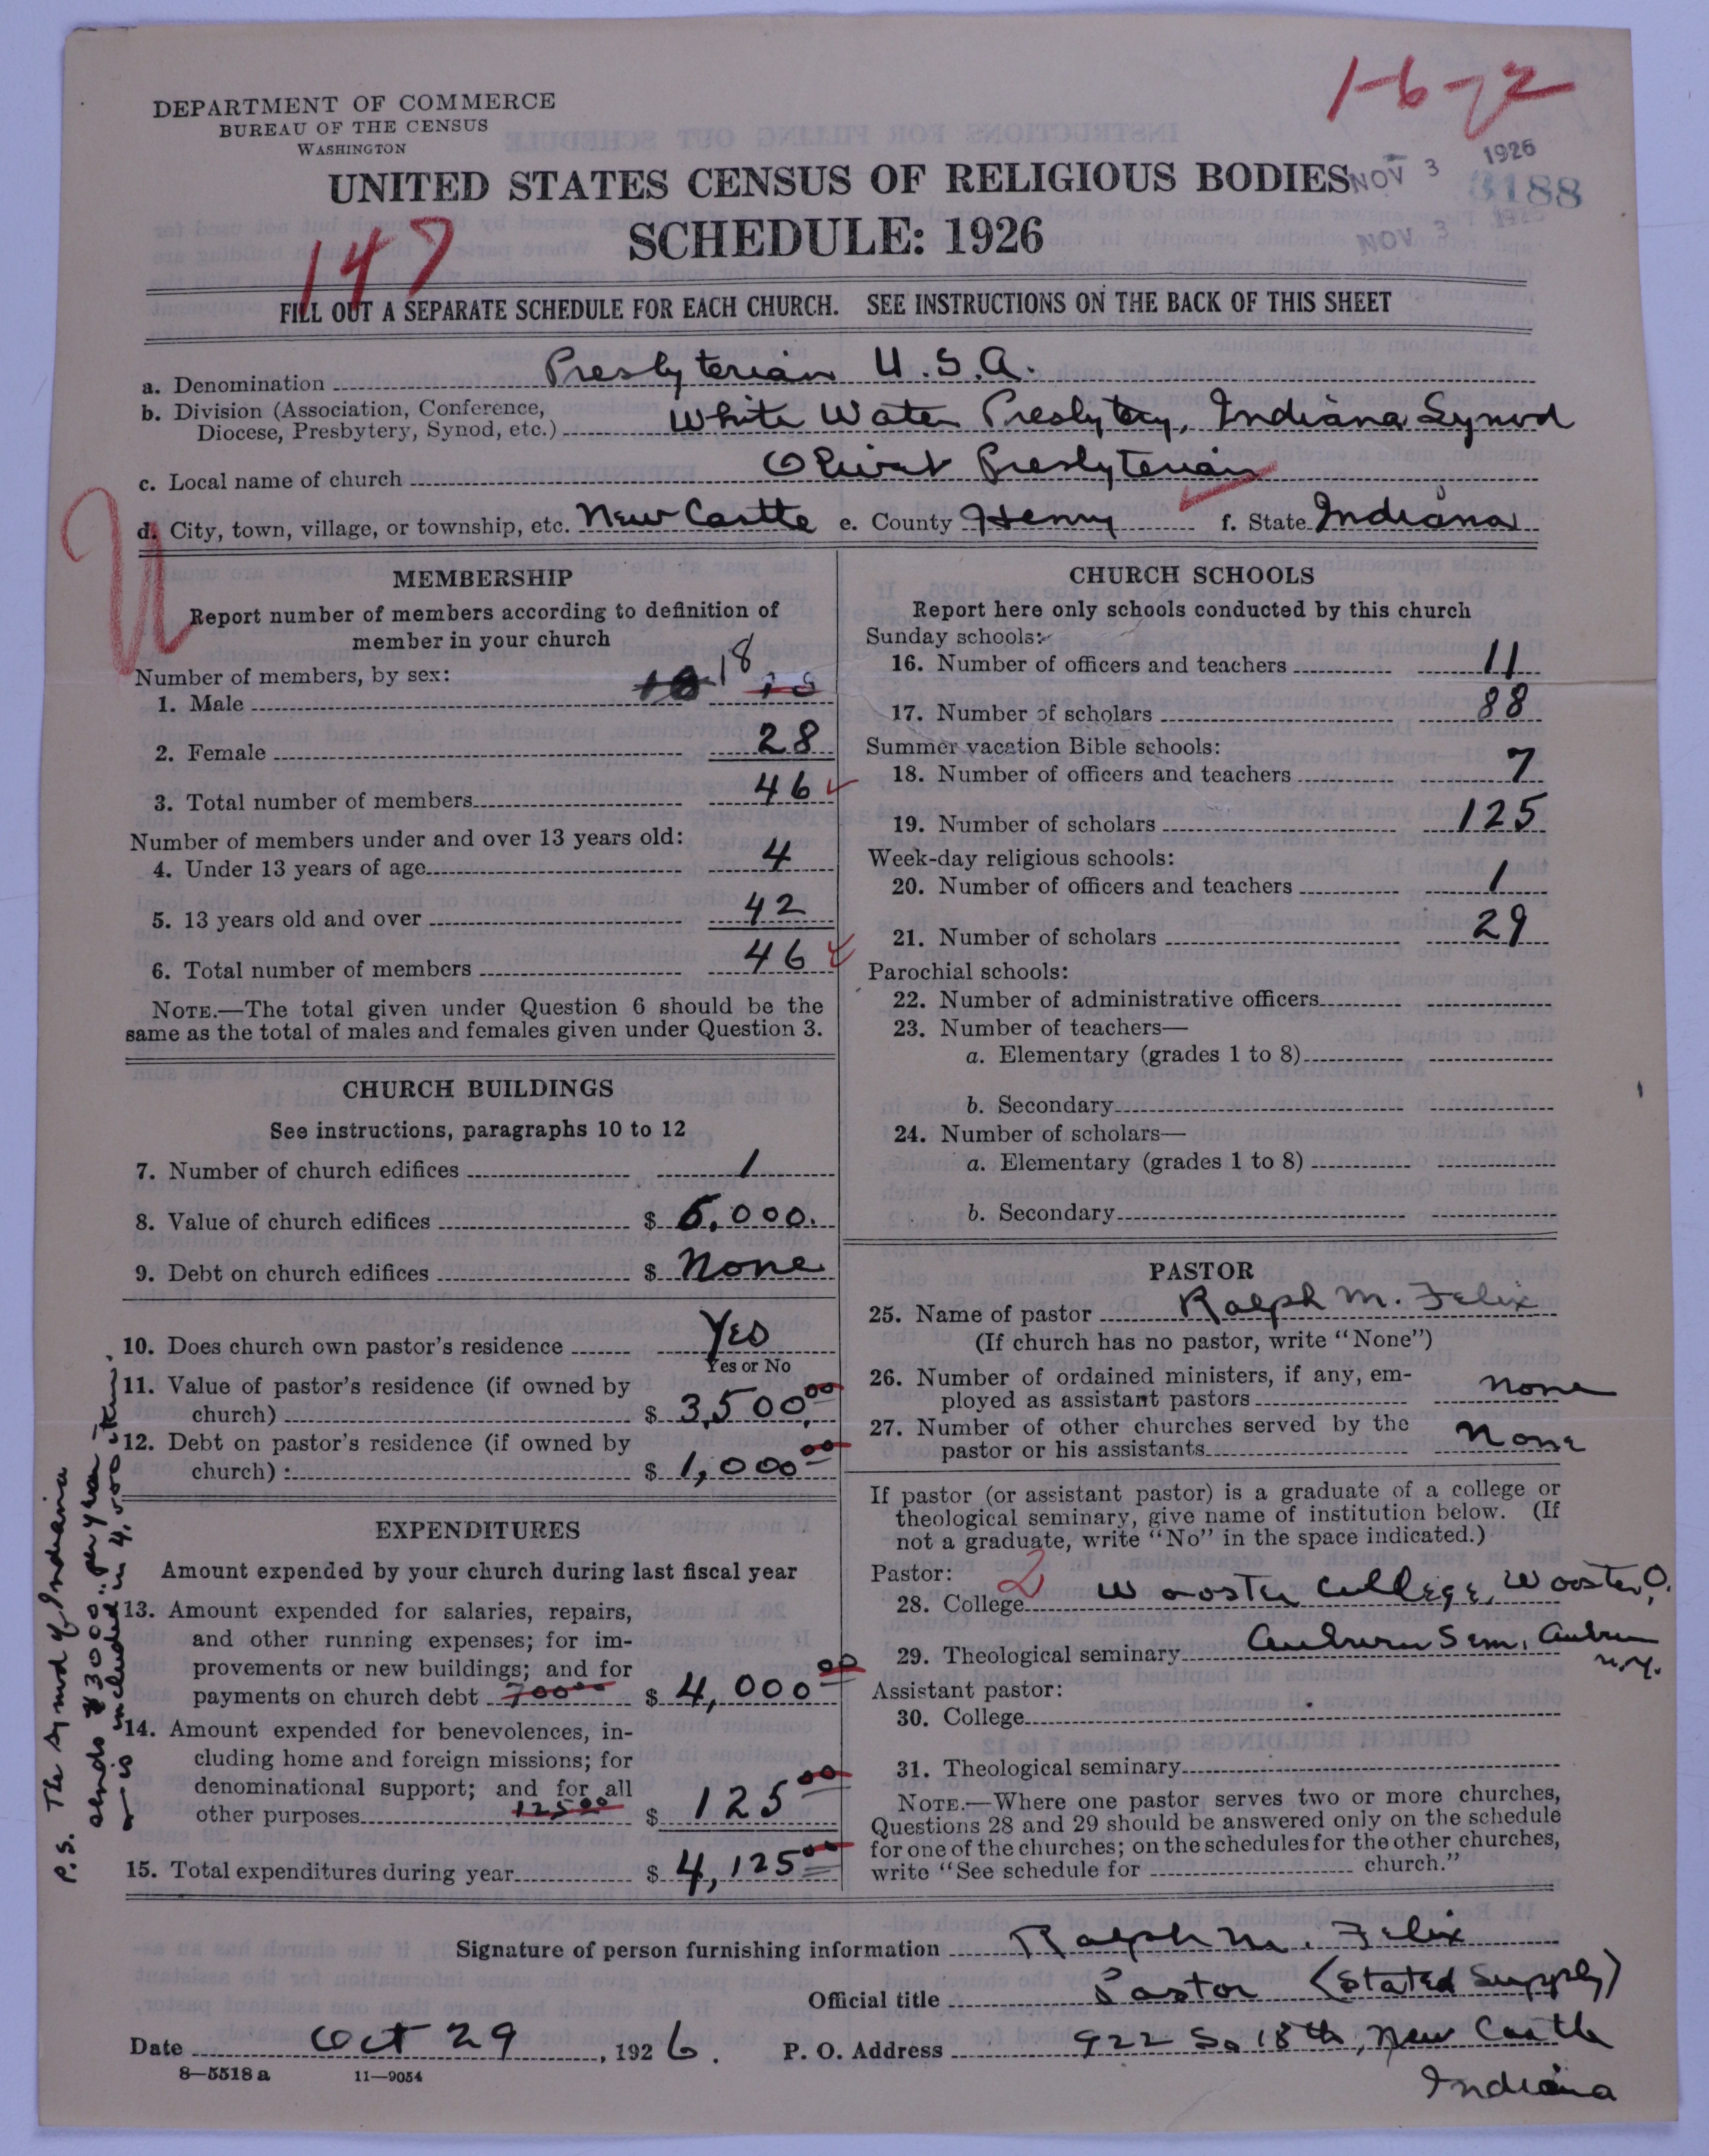 1-6-2
DEPARTMENT OF COMMERCE
BUREAU OF THE CENSUS
WASHINGTON
NOV 3 1926
3188
UNITED STATES CENSUS OF RELIGIOUS BODIES
NOV 3 192
147
SCHEDULE: 1926
FILL OUT A SEPARATE SCHEDULE FOR EACH CHURCH. SEE INSTRUCTIONS ON THE BACK OF THIS SHEET
a. Denomination Presbyterian U.S.A.
b. Division (Association, Conference, Diocese, Presbytery, Synod, etc.) White Water Presbytery, Indiana Synod
c. Local name of church Olivet Presbyterian
d. City, town, village, or township, etc. New Castle e. County Henry f. State Indiana
MEMBERSHIP
Report number of members according to definition of
member in your church
Number of members, by sex:
1. Male 18
2. Female 28
3. Total number of members 46
Number of members under and over 13 years old:
4. Under 13 years of age 4
5. 13 years old and over 42
6. Total number of members 46
NOTE.—The total given under Question 6 should be the
same as the total of males and females given under Question 3.
CHURCH BUILDINGS
See instructions, paragraphs 10 to 12
7. Number of church edifices 1
8. Value of church edifices $ 5,000.
9. Debt on church edifices $ None
10. Does church own pastor's residence Yes
Yes or No
11. Value of pastor's residence (if owned by
church) $ 3,500.00
12. Debt on pastor's residence (if owned by
church) : $ 1,000.00
EXPENDITURES
Amount expended by your church during last fiscal year
13. Amount expended for salaries, repairs,
and other running expenses; for im-
provements or new buildings; and for
payments on church debt 700.00 $ 4,000.00
14. Amount expended for benevolences, in-
cluding home and foreign missions; for
denominational support; and for all
other purposes 125.00 $ 125.00
15. Total expenditures during year $ 4,125.00
P.S. The Synod of Indiana
sends $3000.00 per year
is included in 4,000 item.
CHURCH SCHOOLS
Report here only schools conducted by this church
Sunday schools:
16. Number of officers and teachers 11
17. Number of scholars 88
Summer vacation Bible schools:
18. Number of officers and teachers 7
19. Number of scholars 125
Week-day religious schools:
20. Number of officers and teachers 1
21. Number of scholars 29
Parochial schools:
22. Number of administrative officers
23. Number of teachers—
a. Elementary (grades 1 to 8)
b. Secondary
24. Number of scholars—
a. Elementary (grades 1 to 8)
b. Secondary
PASTOR
25. Name of pastor Ralph M. Felix
(If church has no pastor, write "None")
26. Number of ordained ministers, if any, em-
ployed as assistant pastors None
27. Number of other churches served by the
pastor or his assistants None
If pastor (or assistant pastor) is a graduate of a college or
theological seminary, give name of institution below. (If
not a graduate, write "No" in the space indicated.)
Pastor: 2
28. College Wooster College, Wooster, O.
29. Theological seminary Auburn Sem, Auburn
N.Y.
Assistant pastor:
30. College
31. Theological seminary
NOTE.—Where one pastor serves two or more churches,
Questions 28 and 29 should be answered only on the schedule
for one of the churches; on the schedules for the other churches,
write "See schedule for church."
Signature of person furnishing information Ralph M. Felix
Official title Pastor (Stated Supply)
Date Oct 29, 1926. P. O. Address 922 So 18th, New Castle
Indiana
8—5518 a 11—9054